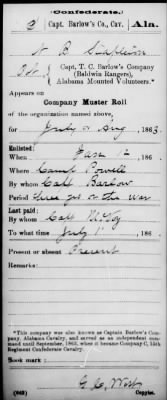 Confederate.
Capt. Barlow's Co., Cav. Ala.
N B Stapleton
Pvt, Capt. T. C. Barlow's Company
(Baldwin Rangers),
Alabama Mounted Volunteers.*
Appears on
Company Muster Roll
of the organization named above,
for July & Aug, 1863.
Enlisted:
When Jan, 186
Where Camp Powell
By whom Capt Barlow
Period three yrs or the war
Last paid:
By whom Capt McVoy
To what time July 1, 186
Present or absent Present
Remarks:
*This company was also known as Captain Barlow's Company, Alabama Cavalry, and served as an independent command until September, 1863, when it became Company C, 15th Regiment Confederate Cavalry.
Book mark:
(642)